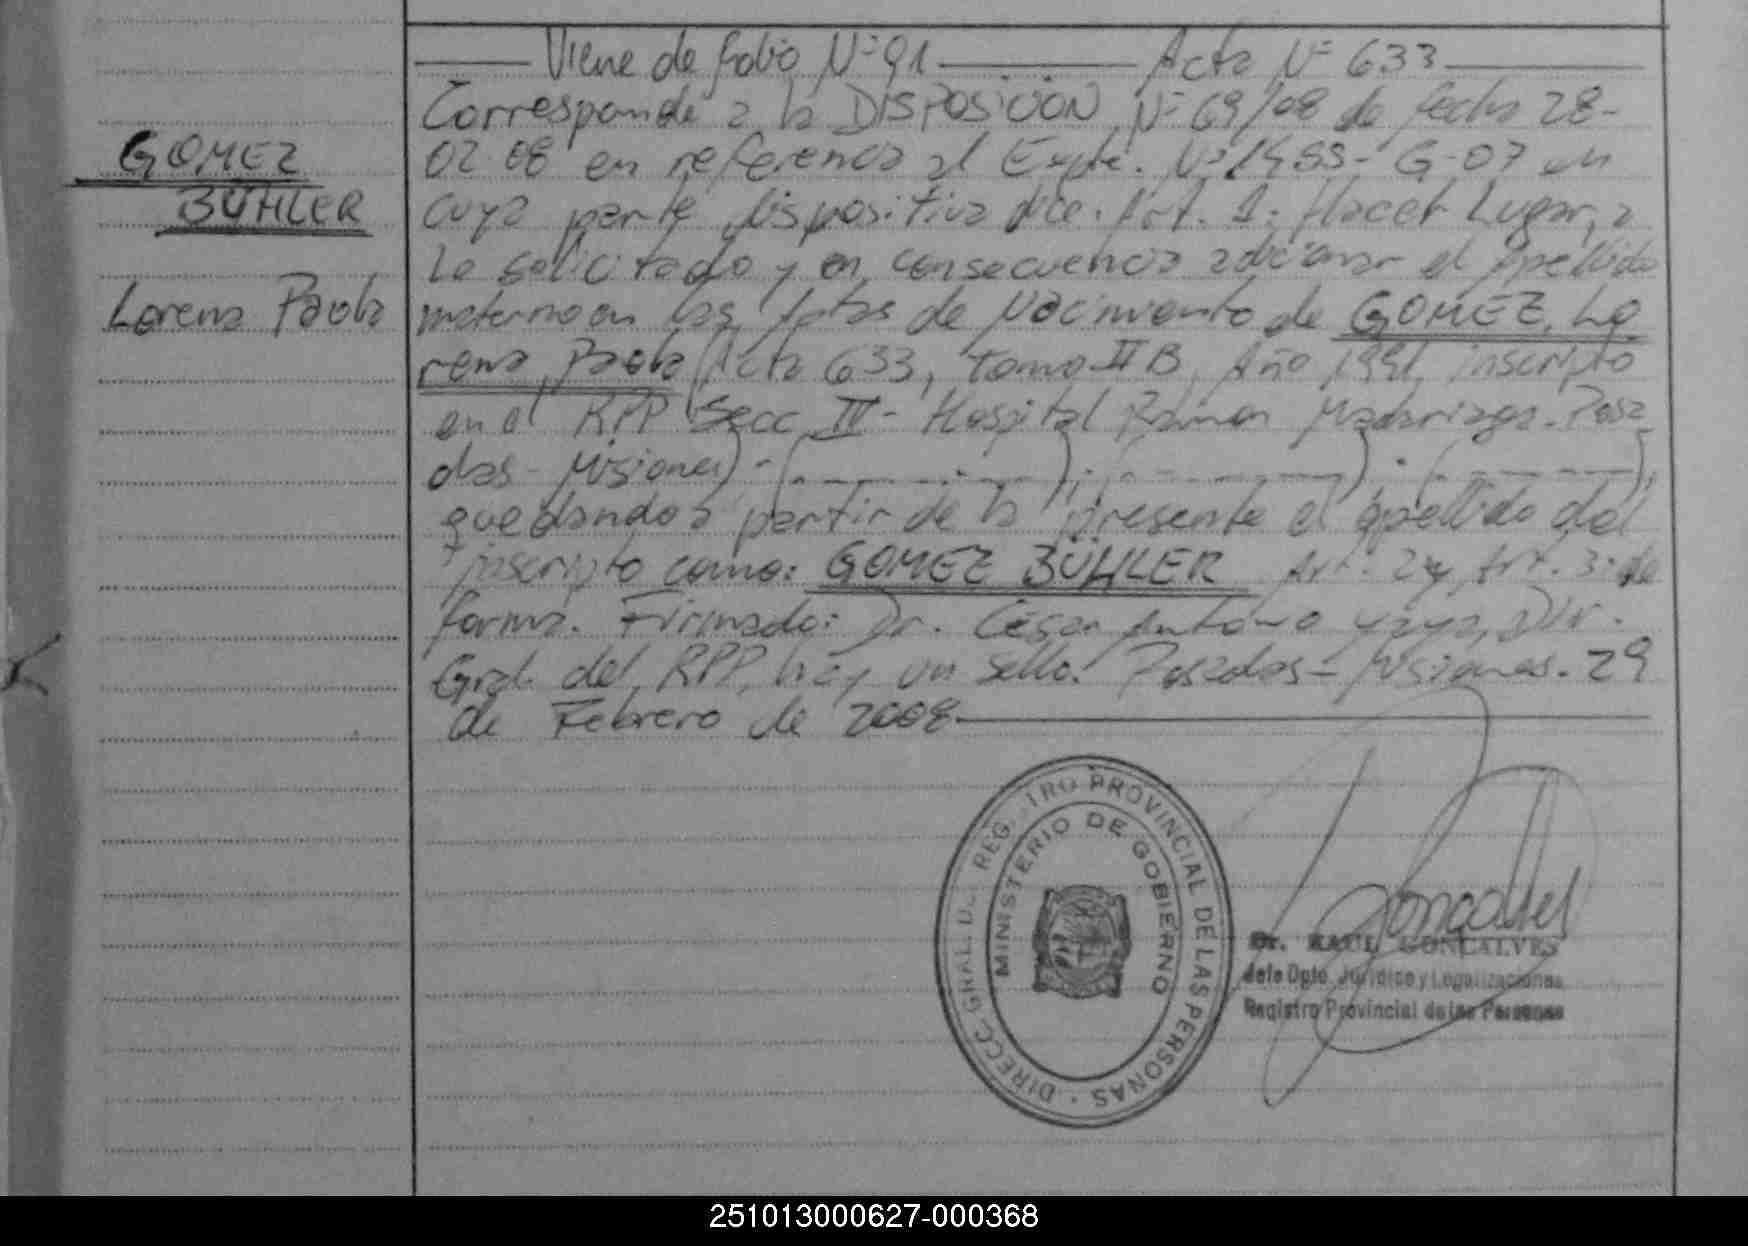 Viene de folio Nº 91 Acta Nº 633
Corresponde a la DISPOSICION Nº 69/08 de fecha 28-
02-08 en referencia al Expte. Nº 1455-G-07 en
cuya parte dispositiva dice: Art. 1: Hacer Lugar a
lo solicitado y en consecuencia adicionar el apellido
materno en las Actas de Nacimiento de GOMEZ, Lo
rena Paola (Acta 633, tomo II B, Año 1991, inscripto
en el RPP Secc IV - Hospital Ramon Madariaga. Posa
das - Misiones) - ( ) ; ( ) ; ( ),
quedando a partir de la presente el apellido del
inscripto como: GOMEZ BÜHLER Art. 2 y Art. 3: de
forma. Firmado: Dr. César Antonio Yaya, Dir.
Gral. del RPP, hay un sello. Posadas - Misiones. 29
de Febrero de 2008
GOMEZ
BÜHLER
Lorena Paola
DIRECC. GRAL. DEL REGISTRO PROVINCIAL DE LAS PERSONAS
MINISTERIO DE GOBIERNO
Dr. RAUL GONCALVES
Jefe Dpto. Jurídico y Legalizaciones
Registro Provincial de las Personas
251013000627-000368